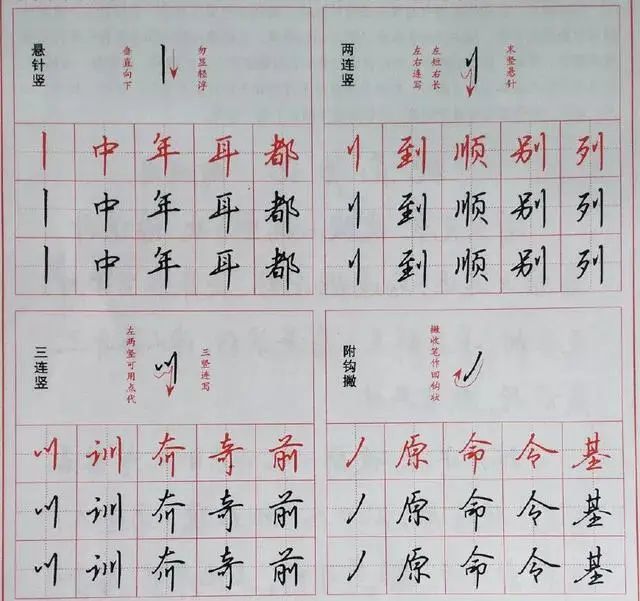 悬针竖
垂直向下
勿显轻浮
丨 中 年 耳 都
丨 中 年 耳 都
丨 中 年 耳 都
两连竖
左短右长
左右连写
末竖悬针
刂 到 顺 别 列
刂 到 顺 别 列
刂 到 顺 别 列
三连竖
左两竖可用点代
三竖连写
川 训 奇 前
川 训 奇 前
川 训 奇 前
附钩撇
撇收笔作回钩状
丿 原 命 令 基
丿 原 命 令 基
丿 原 命 令 基